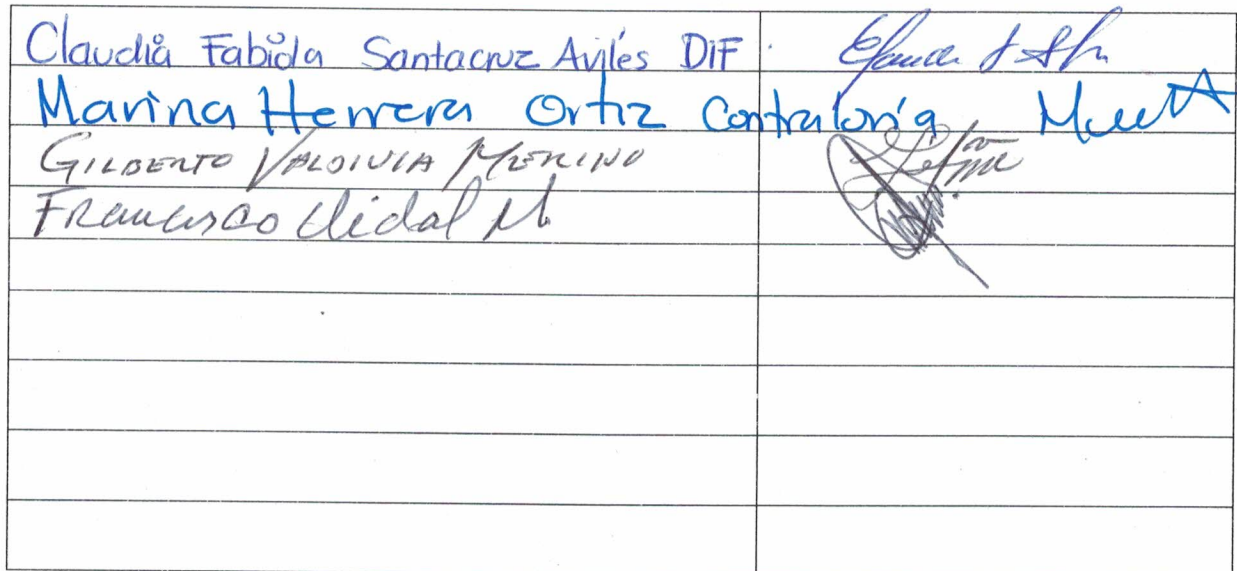 Claudia Fabiola Santacruz Avilés DIF
Marina Herrera Ortiz Contraloría
GILBERTO VALDIVIA MERINO
Francisco Vidal M